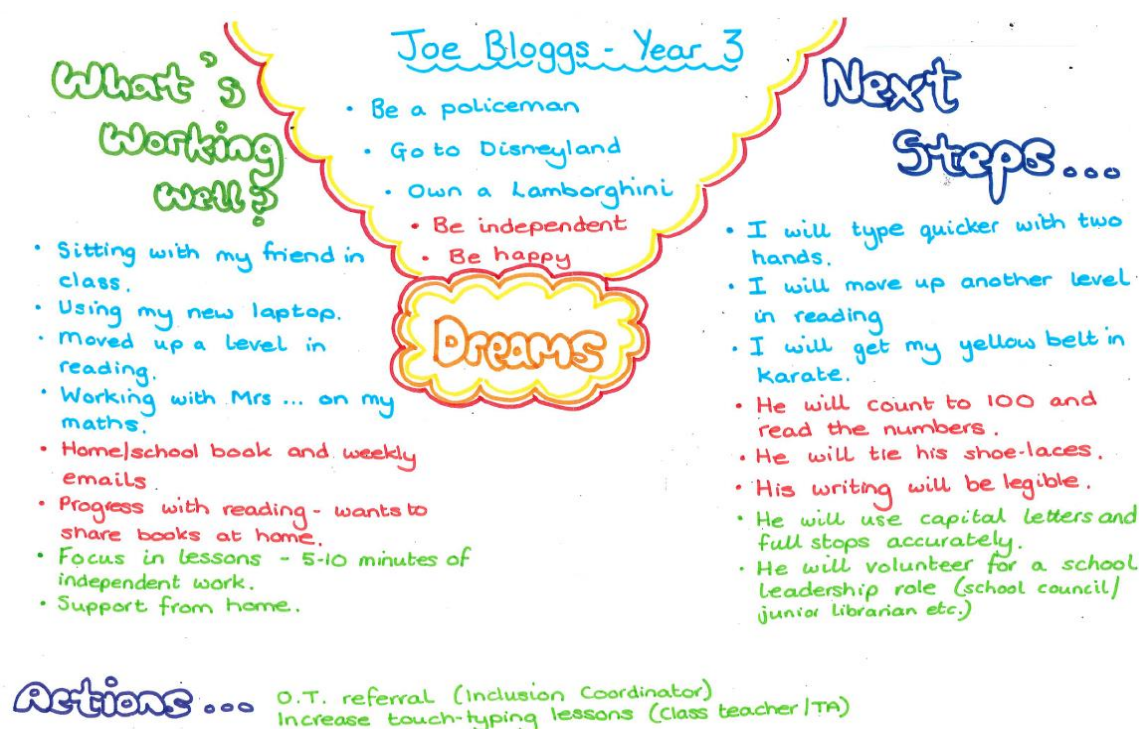 Joe Bloggs - Year 3
• Be a policeman
• Go to Disneyland
• Own a Lamborghini
• Be independent
• Be happy
Dreams
What's
Working
Well?
• Sitting with my friend in
class.
• Using my new laptop.
• Moved up a level in
reading.
• Working with Mrs ... on my
maths.
• Home/school book and weekly
emails
• Progress with reading - wants to
share books at home.
• Focus in lessons - 5-10 minutes of
independent work.
• Support from home.
Next
Steps...
• I will type quicker with two
hands.
• I will move up another level
in reading
• I will get my yellow belt in
karate.
• He will count to 100 and
read the numbers.
• He will tie his shoe-laces.
• His writing will be legible.
• He will use capital letters and
full stops accurately.
• He will volunteer for a school
leadership role (school council/
junior librarian etc.)
Actions...
O.T. referral (Inclusion Coordinator)
Increase touch-typing lessons (Class teacher/TA)